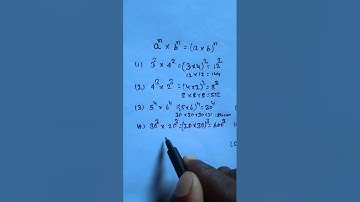 aⁿ × bⁿ = (a×b)ⁿ
(1) 3² × 4² = (3×4)² = 12²
12 × 12 = 144
(2) 4³ × 2³ = (4×2)³ = 8³
8 × 8 × 8 = 512
(3) 5⁴ × 6⁴ = (5×6)⁴ = 30⁴
30 × 30 × 30 × 30 =
4) 30³ × 20³ = (20×30)³ = 600³